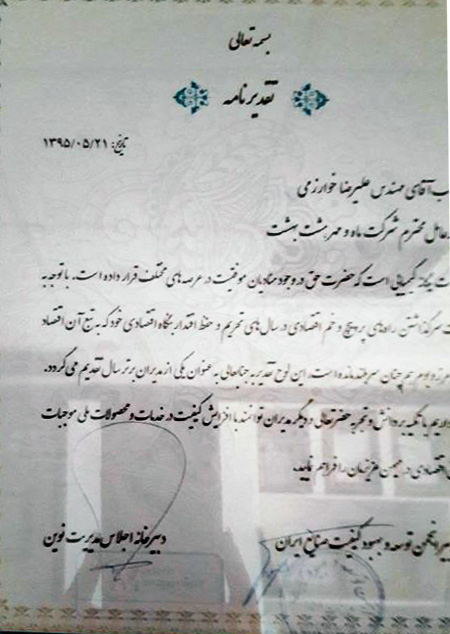 بسمه تعالی
تقدیرنامه
تاریخ: ۱۳۹۵/۰۵/۲۱
آقای مهندس علیرضا خوارزمی
عامل محترم شرکت ماه و مهر بهشت
کیمیایی است که حضرت حق در وجود منادیان موفقیت در عرصه های مختلف قرار داده است. با توجه به
سر گذاشتن راه های پر پیچ و خم اقتصادی در سال های تحریم و حفظ اقتدار بنگاه اقتصادی خود که به تبع آن اقتصاد
مرز و بوم همچنان سربلند مانده است، این لوح تقدیر به جنابعالی به عنوان یکی از مدیران برتر سال تقدیم می گردد.
داریم با تکیه بر دانش و تجربه حضرتعالی و دیگر مدیران توانمند با افزایش کیفیت در خدمات و محصولات ملی موجبات
اقتصادی در میهن عزیزمان را فراهم نماید.
انجمن توسعه و بهبود کیفیت صنایع ایران
دبیرخانه اجلاس مدیریت نوین